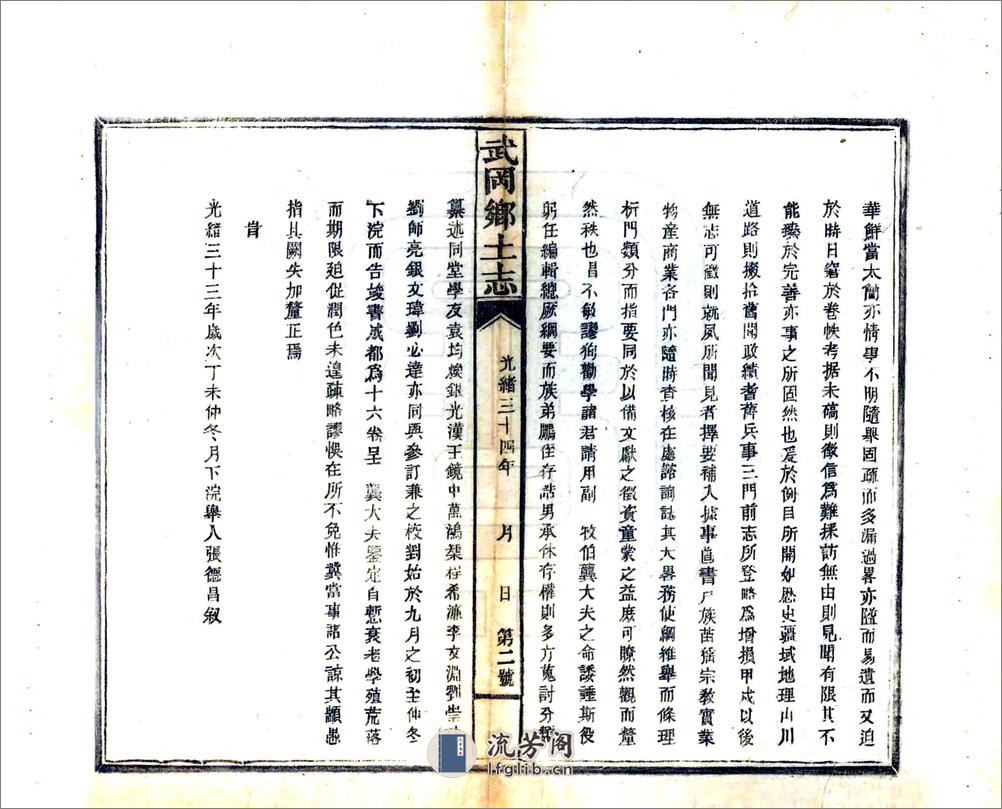 華鮮當太簡亦情事不明隨舉固疏而多漏過畧亦隘而易遺而又迫
於時日窘於卷帙考據未碻則徵信爲難採訪無由則見聞有限其不
能臻於完善亦事之所固然也爰於例目所開如歷史疆域地理山川
道路則搬拾舊聞政績耆舊兵事三門前志所登略爲增損甲戍以後
無志可徵則就夙所聞見者擇要補入據事直書戶族苗猺宗教實業
物産商業各門亦隨時查核在處諮詢誌其大畧務使綱維舉而條理
析門類分而指要同於以備文獻之徵資童業之益庶可瞭然觀而釐
然秩也昌不敏謬徇勸學諸君請用副 牧伯龔大夫之命諉諈斯役
躬任編輯總厥綱要而族弟鵬任存誥男承休存權則多方蒐討分類
武岡鄉土志
光緒三十四年 月 日 第二號
纂述同堂學友袁均焌銀光漢王鏡中萬鴻榘程希濂李文淵鄧
劉師亮銀文瑋劉必達亦同與參訂兼之校對始於九月之初主仲冬
下浣而告竣書成都爲十六卷呈 龔大夫鑒定自慙衰老學殖荒落
而期限廹促潤色未遑疎略謬悞在所不免惟冀當事諸公諒其顓愚
指其闕失加釐正焉
旹
光緒三十三年歲次丁未仲冬月下浣舉人張德昌敘
流芳阁
lfglib.cn